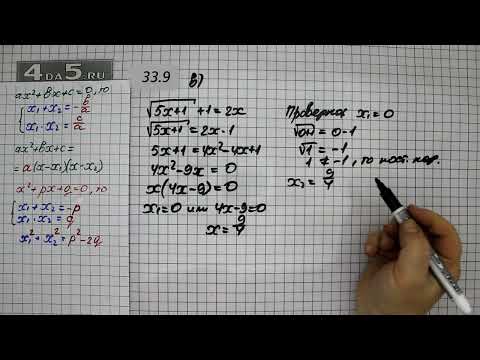 4DA5.RU
ax²+bx+c=0, то
{ x₁+x₂=-b/a
x₁·x₂=c/a
ax²+bx+c=
=a(x-x₁)(x-x₂)
x²+px+q=0, то
{ x₁+x₂=-p
x₁·x₂=q
x₁²+x₂²=p²-2q
33.9
в)
√5x+1 +1=2x
√5x+1=2x-1
5x+1=4x²-4x+1
4x²-9x=0
x(4x-9)=0
x₁=0 или 4x-9=0
x=9/4
Проверка x₁=0
√0+1=0-1
√1=-1
1≠-1, то пост. кор.
x₂=9/4